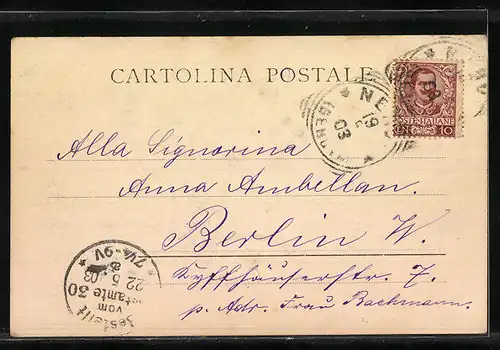 CARTOLINA POSTALE
POSTE ITALIANE
CEN. 10
19
03
Alla Signorina
Anna Ambellan.
Berlin W.
Kyffhäuserstr. 7.
p. Adr. Frau Bachmann.
Bestellt
vom
Postamte 30
22 5 03
7¼-9V